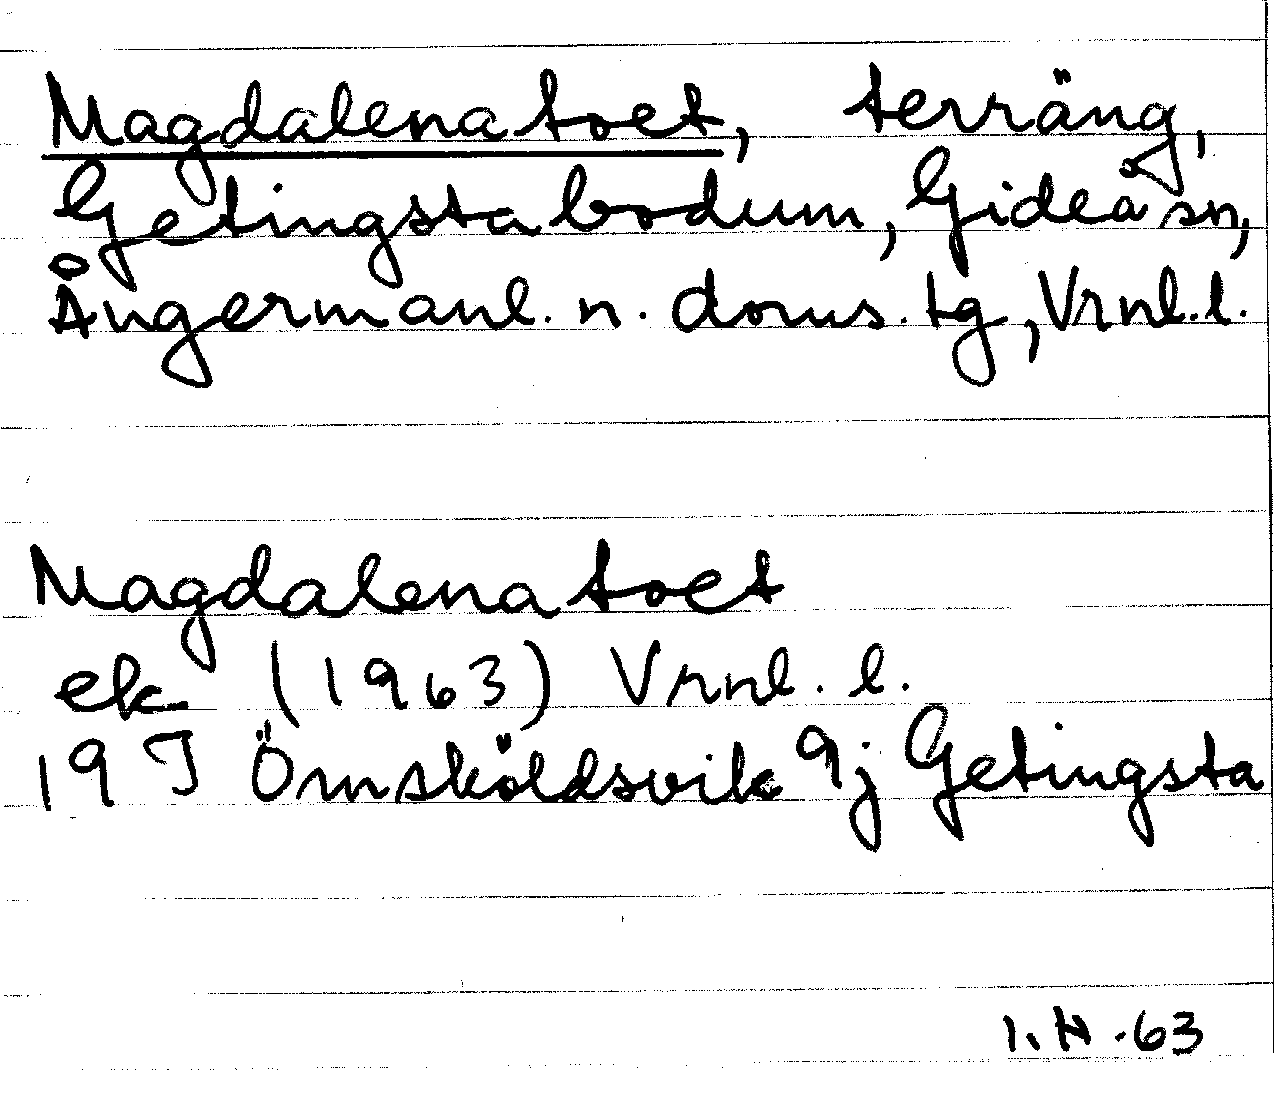 Magdalenatoet, terräng,
Getingstabodum, Gideå sn,
Ångermanl. n. doms. tg, Vrnl.l.
Magdalenatoet
ek (1963) Vrnl. l.
19 J Örnsköldsvik 9j Getingsta
1.H.63